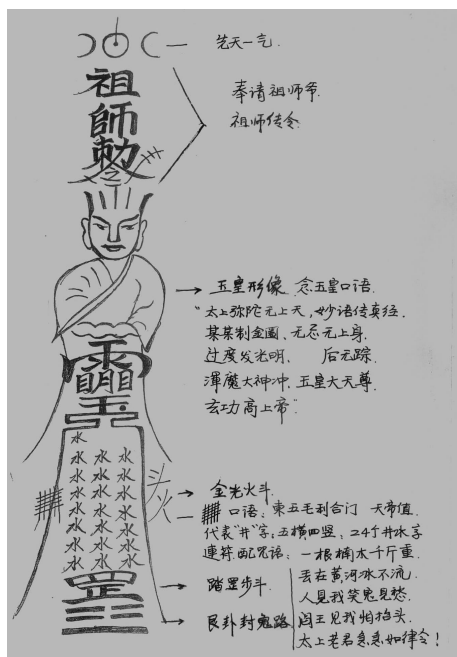 先天一气
祖
師
勅
奉请祖师爷
祖师传令
五皇形像 念五皇口语
“太上弥陀元上天，妙语传真经．
某某制金图、无忌无上身．
过度发光明． 后无踪．
渾魔大神冲．五皇大天尊．
玄功高上帝”
日月日月
玉
水
水 水 水
水 水 水
水 水 水
水 水 水
水 水 水
水 水 水
水 水 水
斗
火
金光火斗
口语：東五毛利合门 大帝值．
代表“井”字，五横四竖，24个井水字
連符配咒语：一根楠木千斤重
丢在黄河水不流．
人见我笑鬼见愁
阎王见我怕抬头．
太上老君急急如律令！
罡
踏罡步斗
艮卦封鬼路